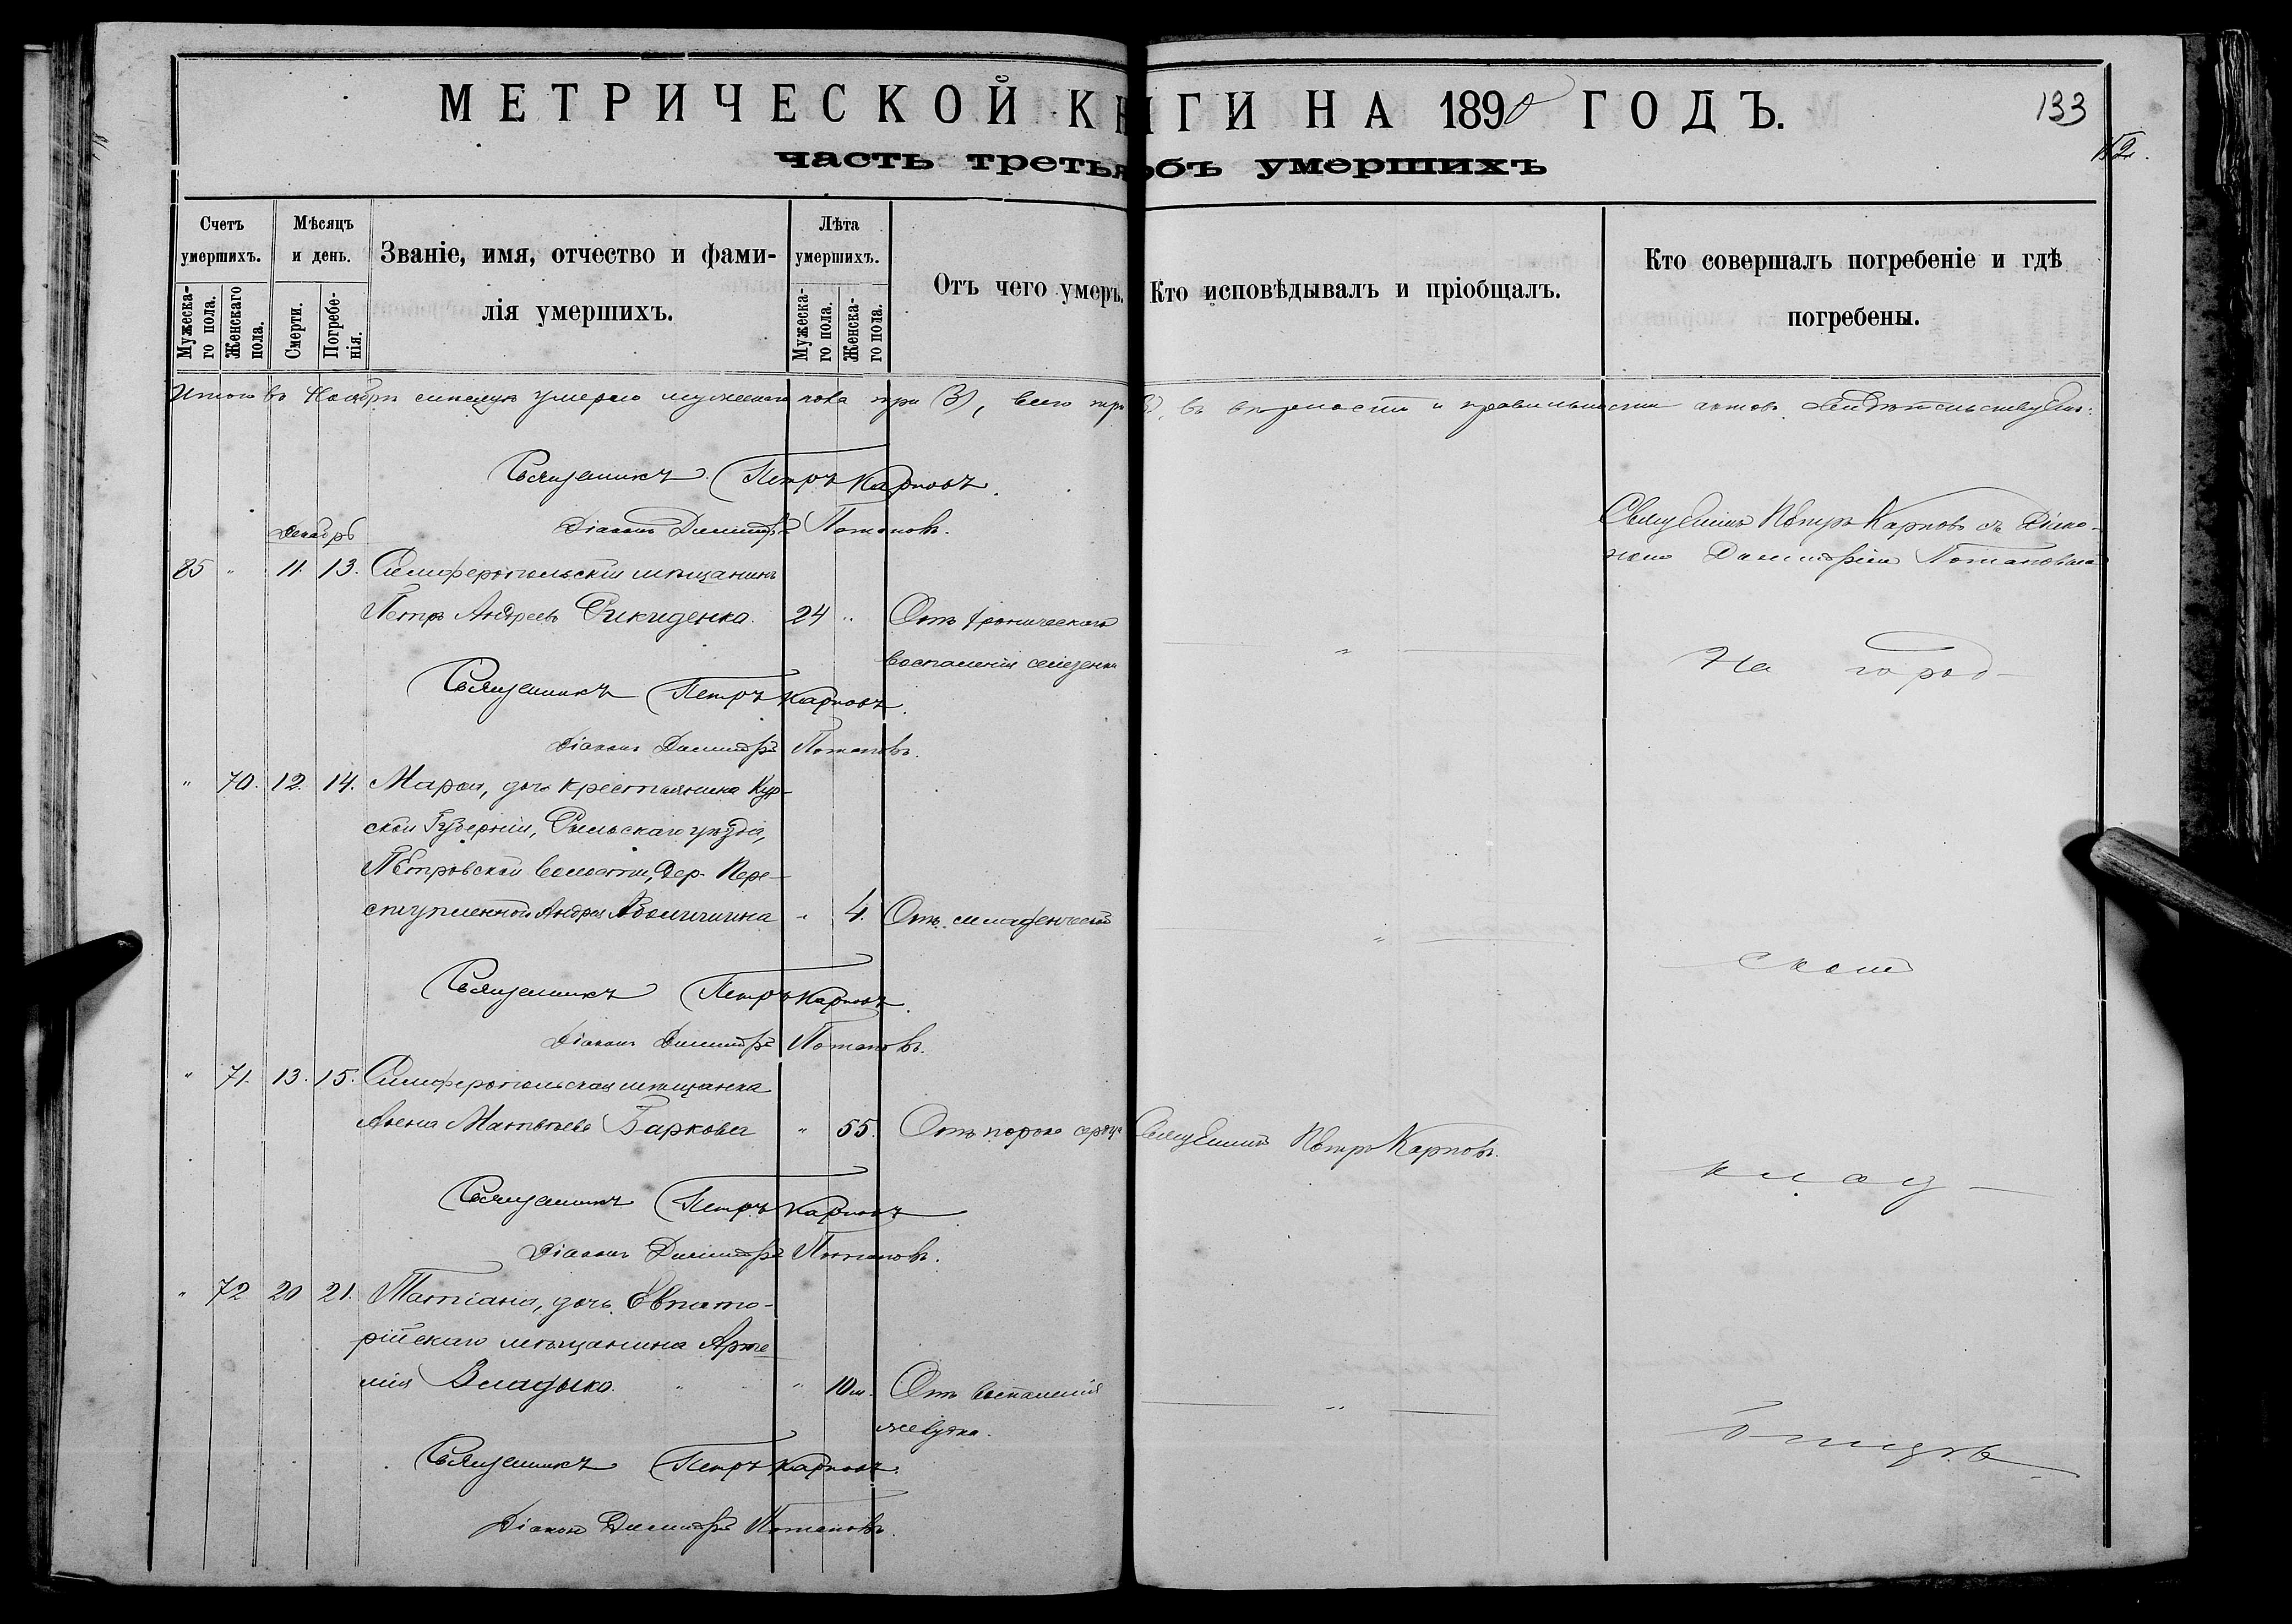 МЕТРИЧЕСКОЙ КНИГИ НА 1890 ГОДЪ.
133
часть третья объ умершихъ
Счетъ умершихъ.
Мужескаго пола.
Женскаго пола.
Мѣсяцъ и день.
Смерти.
Погребенія.
Званіе, имя, отчество и фами-
лія умершихъ.
Лѣта умершихъ.
Мужескаго пола.
Женскаго пола.
Отъ чего умеръ.
Кто исповѣдывалъ и пріобщалъ.
Кто совершалъ погребеніе и гдѣ
погребены.
Итого въ Ноябрѣ мѣсяцѣ умерло мужескаго пола три (3), всего три (3), въ вѣрности и правильности актовъ свидѣтельствуемъ:
Священникъ Петръ Карповъ.
Діаконъ Димитрій Потаповъ.
Декабрь
85 " 11. 13. Симферопольскій мѣщанинъ
Петръ Андреевъ 24 " Отъ хроническаго
воспаленія селезенки
Священникъ Петръ Карповъ съ Діако-
номъ Димитріемъ Потаповымъ
На город-
Священникъ Петръ Карповъ.
Діаконъ Димитрій Потаповъ.
" 70. 12. 14. Марѳа, дочь крестьянина Кур-
ской Губерніи, Рыльскаго уѣзда,
Петровской волости, дер. Пере-
ступленной Андрея " 4. Отъ младенческой
скомъ
Священникъ Петръ Карповъ.
Діаконъ Димитрій Потаповъ.
" 71. 13. 15. Симферопольская мѣщанка
Матвѣева Баркова " 55. Отъ порока сердца Священникъ Петръ Карповъ.
клад-
Священникъ Петръ Карповъ
Діаконъ Димитрій Потаповъ.
" 72 20 21. Татіана, дочь Евпато-
рійскаго мѣщанина Арте-
мія Владыко. " " 10 м. Отъ воспаленія
желудка.
бищѣ.
Священникъ Петръ Карповъ.
Діаконъ Димитрій Потаповъ.